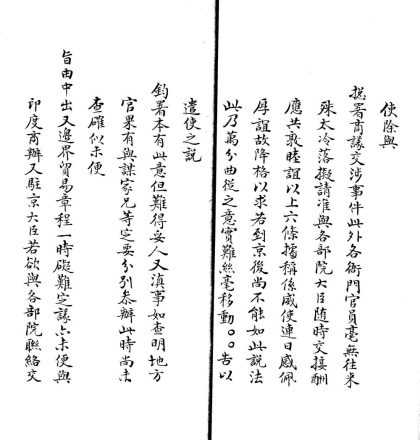 使除與
總署商議交涉事件此外各衙門官員毫無往來
殊太冷落擬請准與各部院大臣隨時交接酬
應共敦睦誼以上六條據稱係威使連日感佩
厚誼故降格以求若到京後尚不能如此說法
此乃萬分曲從之意實難絲毫移動。。告以
遣使之說
鈞署本有此意但難得妥人又滇事如查明地方
官果有與謀家兄等定要分別參辦此時尚未
查確似未便
旨由中出又邊界貿易章程一時礙難定議亦未便與
印度商辦又駐京大臣若欲與各部院聯絡交